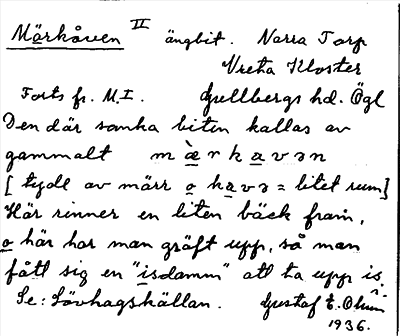 Märkåven II ängbit. Norra Torp
Vreta Kloster
Forts fr. M. I. Gullbergs hd. Ögl
Den där sanka biten kallas av
gammalt mæ̀rkavən
[tydl av märr o kavə = litet rum]
Här rinner en liten bäck fram,
o här har man gräft upp, så man
fått sig en "isdamm" att ta upp is.
Se: Lövhagskällan. Gustaf E.
1936.